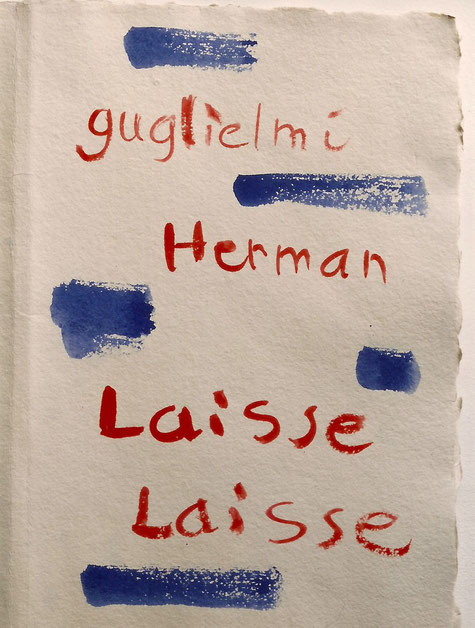 guglielmi
Herman
Laisse
Laisse